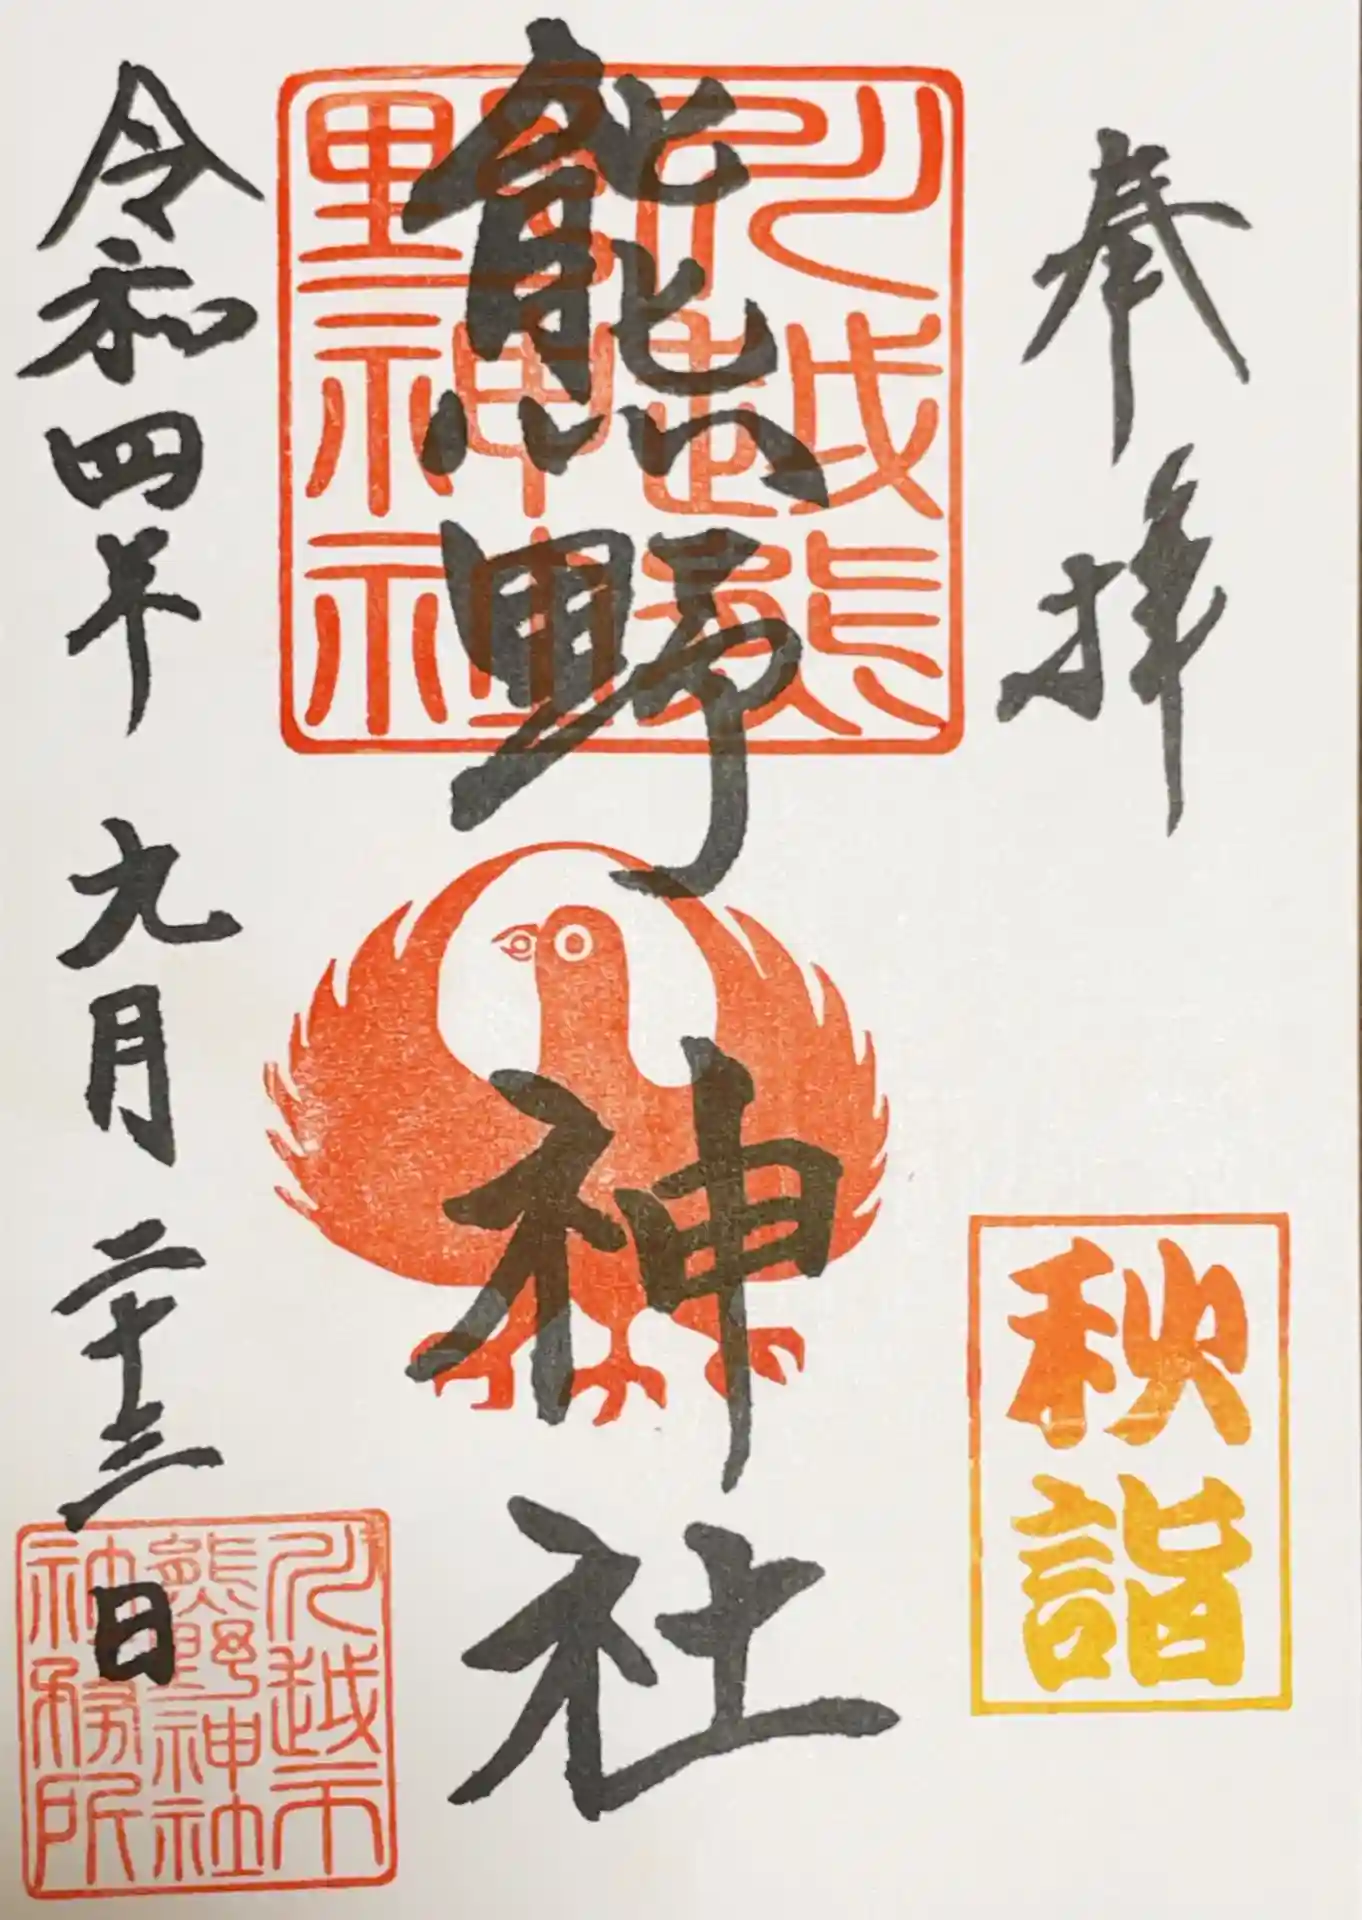 奉拝
秋詣
熊野神社
川越熊
野神社
令和四年 九月 二十三日
川越市
熊野神社
社務所